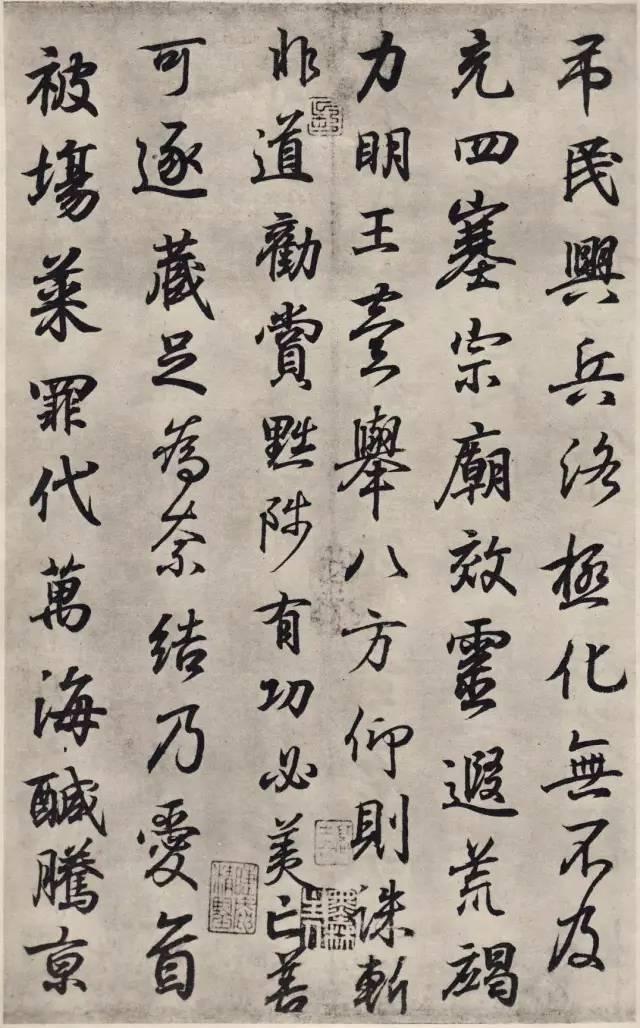 吊民興兵洛極化無不及
充四塞宗廟效靈遐荒竭
力明王臺舉八方仰則誅斬
非道勸賞黜陟有功必美亡善
可逐藏足為奈結乃愛首
被場菜罪代萬海鹹騰京